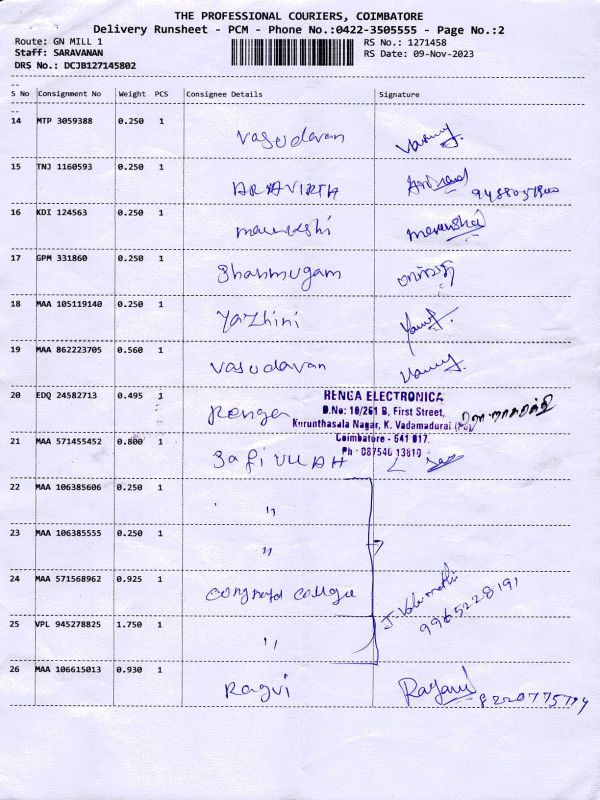 THE PROFESSIONAL COURIERS, COIMBATORE
Delivery Runsheet - PCM - Phone No.:0422-3505555 - Page No.:2
Route: GN MILL 1 RS No.: 1271458
Staff: SARAVANAN RS Date: 09-Nov-2023
DRS No.: DCJB127145802
--
S No Consignment No Weight PCS Consignee Details Signature
--
14 MTP 3059388 0.250 1 Vasudavan
15 TNJ 1160593 0.250 1
16 KDI 124563 0.250 1
17 GPM 331860 0.250 1 Shanmugam
18 MAA 105119140 0.250 1 Yazhini
19 MAA 862223705 0.560 1 Vasudavan
20 EDQ 24582713 0.495 1 Renga
RENGA ELECTRONICA
D.No: 10/261 B, First Street,
Kurunthasala Nagar, K. Vadamadurai (PO)
Coimbatore - 641 017.
Ph : 087540 13810
21 MAA 571455452 0.800 1
22 MAA 106385606 0.250 1 "
23 MAA 106385555 0.250 1 "
24 MAA 571568962 0.925 1 9965228191
25 VPL 945278825 1.750 1 "
26 MAA 106615013 0.930 1 Ragvi